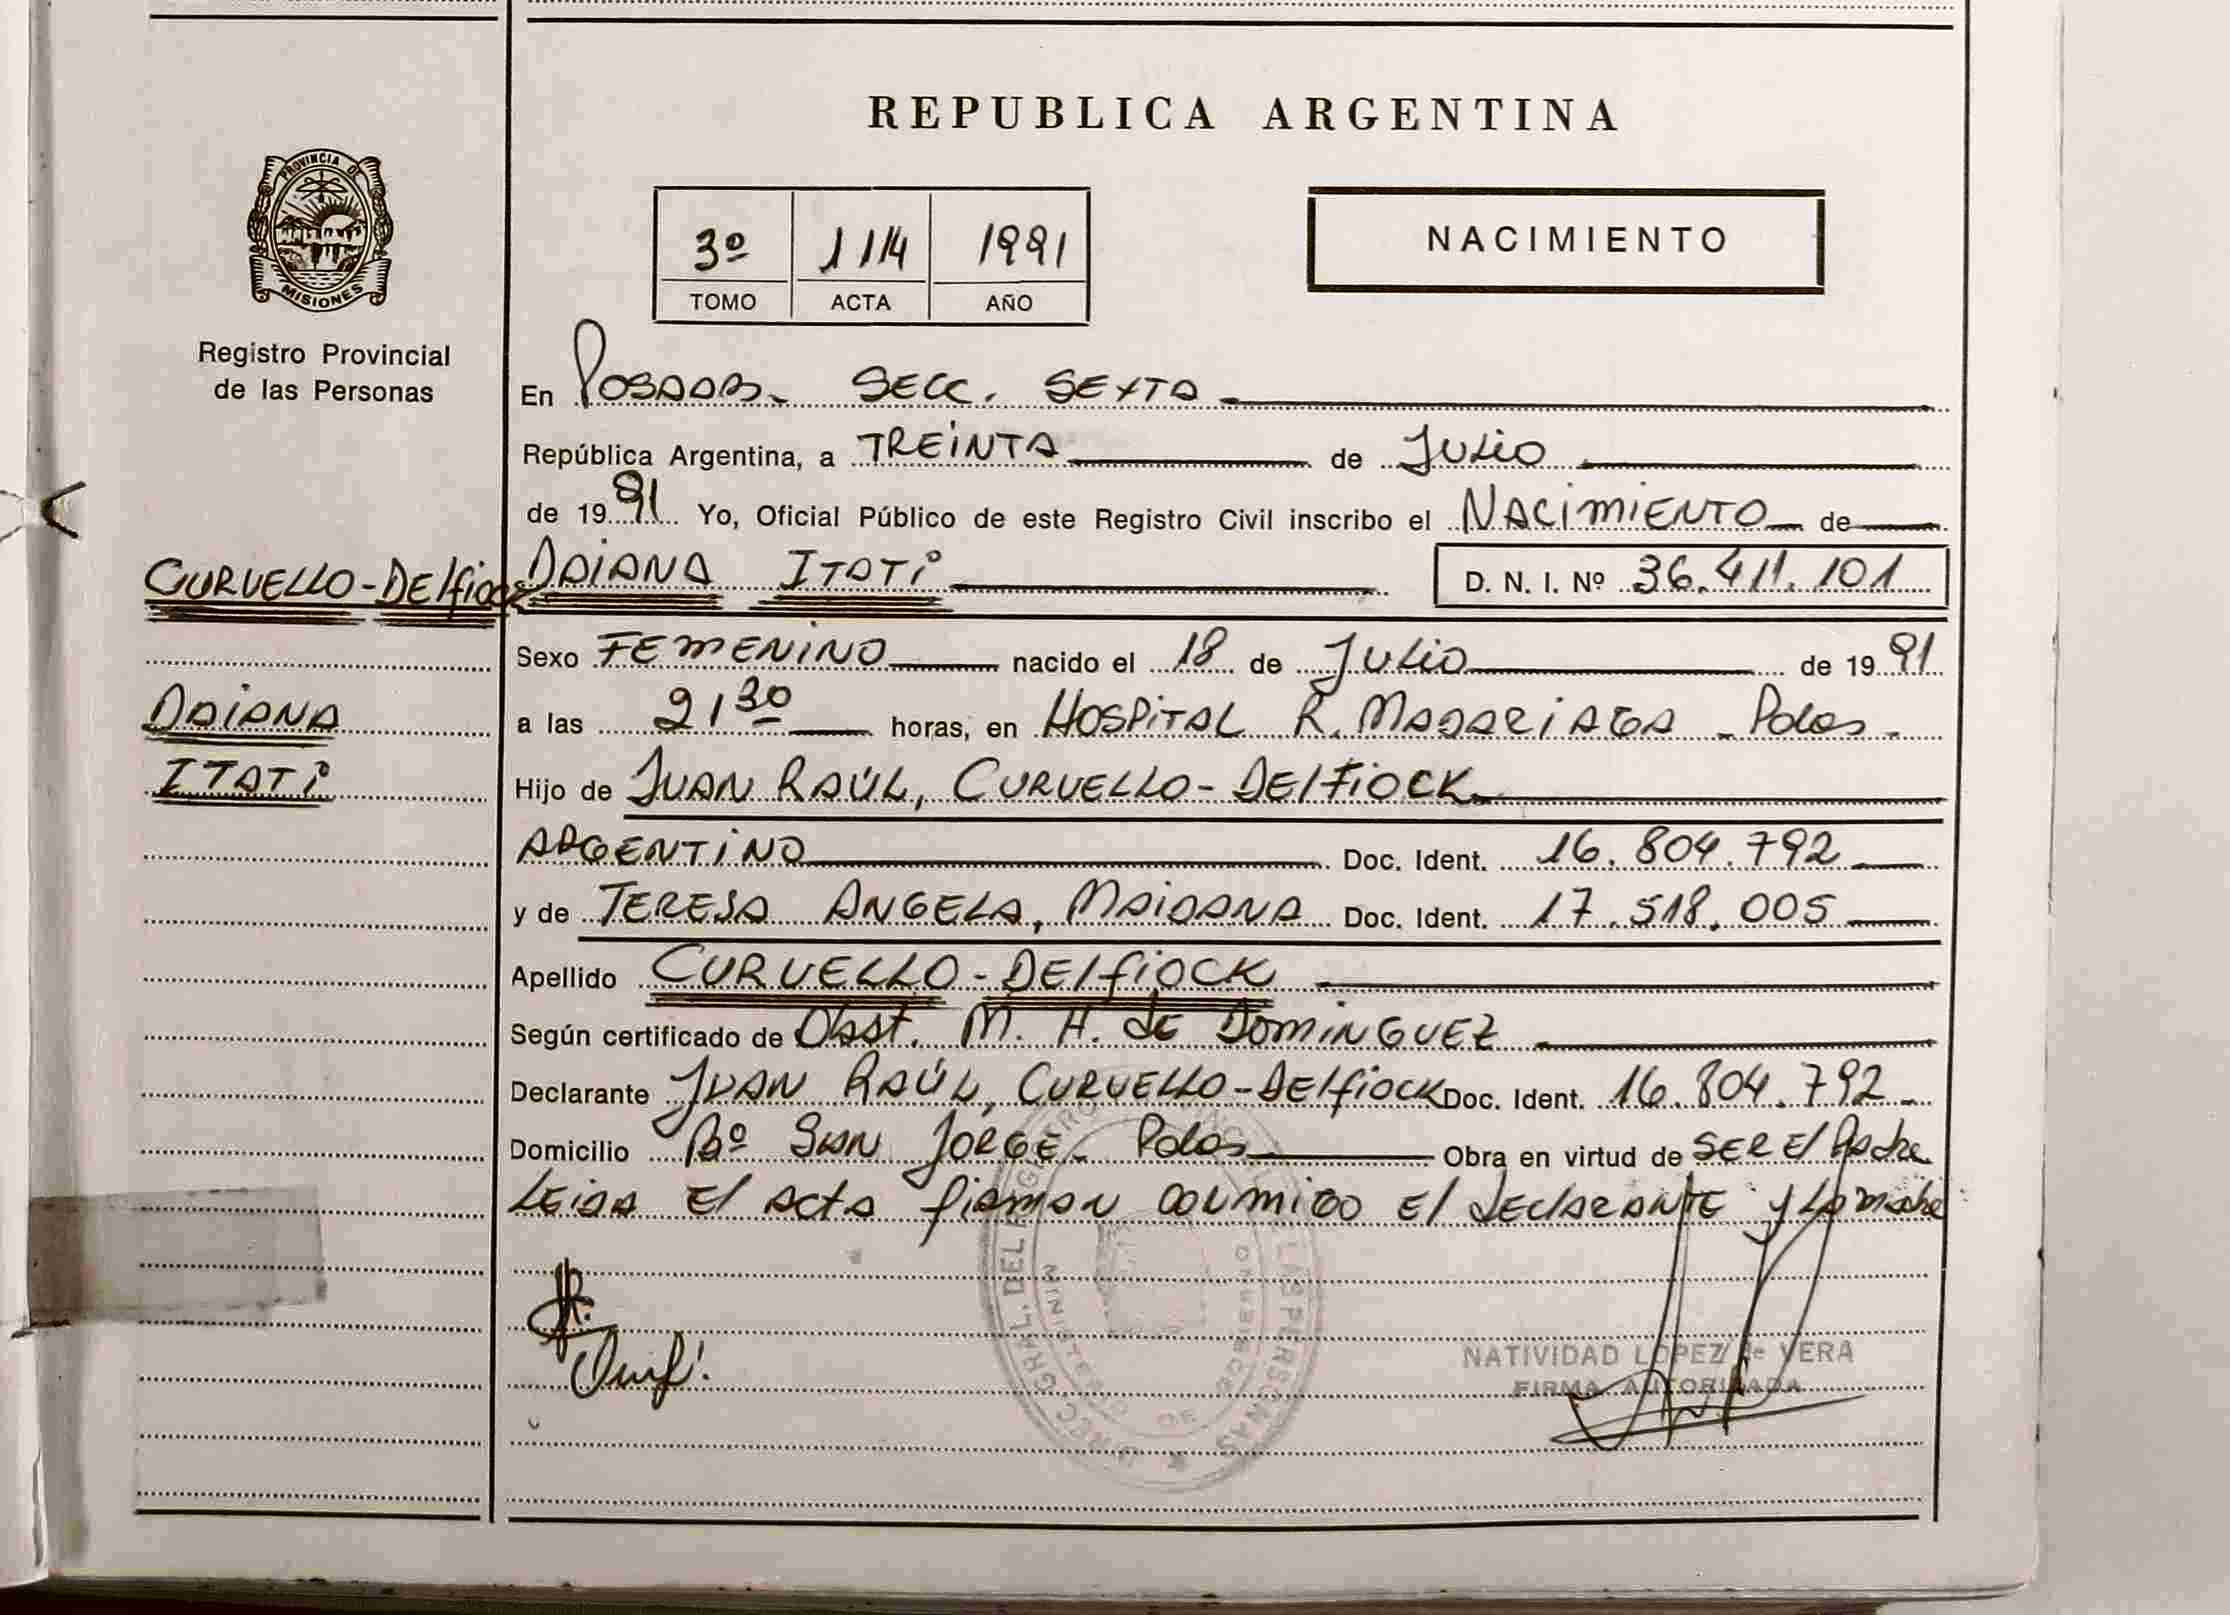 REPUBLICA ARGENTINA
PROVINCIA DE
MISIONES
Registro Provincial
de las Personas
3º 1114 1991
TOMO ACTA AÑO
NACIMIENTO
En Posadas. SECC. SEXTA
República Argentina, a TREINTA de Julio
de 1991 Yo, Oficial Público de este Registro Civil inscribo el NACIMIENTO de
CURVELLO-DElfiock DAIANA ITATI D. N. I. Nº 36.411.101
Sexo FEMENINO nacido el 18 de Julio de 1991
DAIANA
a las 21 30 horas, en HOSPITAL R. MADARIAGA - Pdas.
ITATI
Hijo de JUAN RAÚL, CURVELLO-DElfiOCK
ARGENTINO Doc. Ident. 16.804.792
y de TERESA ANGELA, MAIDANA Doc. Ident. 17.518.005
Apellido CURVELLO-DElfiOCK
Según certificado de Obst. M. H. de DOMINGUEZ
Declarante JUAN RAÚL, CURVELLO-DElfiOCK Doc. Ident. 16.804.792
Domicilio Bº SAN JORGE - Pdas Obra en virtud de SER El Padre
LEIDA El acta firman conmigo El dEclaraNTE y La madre
NATIVIDAD LOPEZ de VERA
FIRMA AUTORIZADA